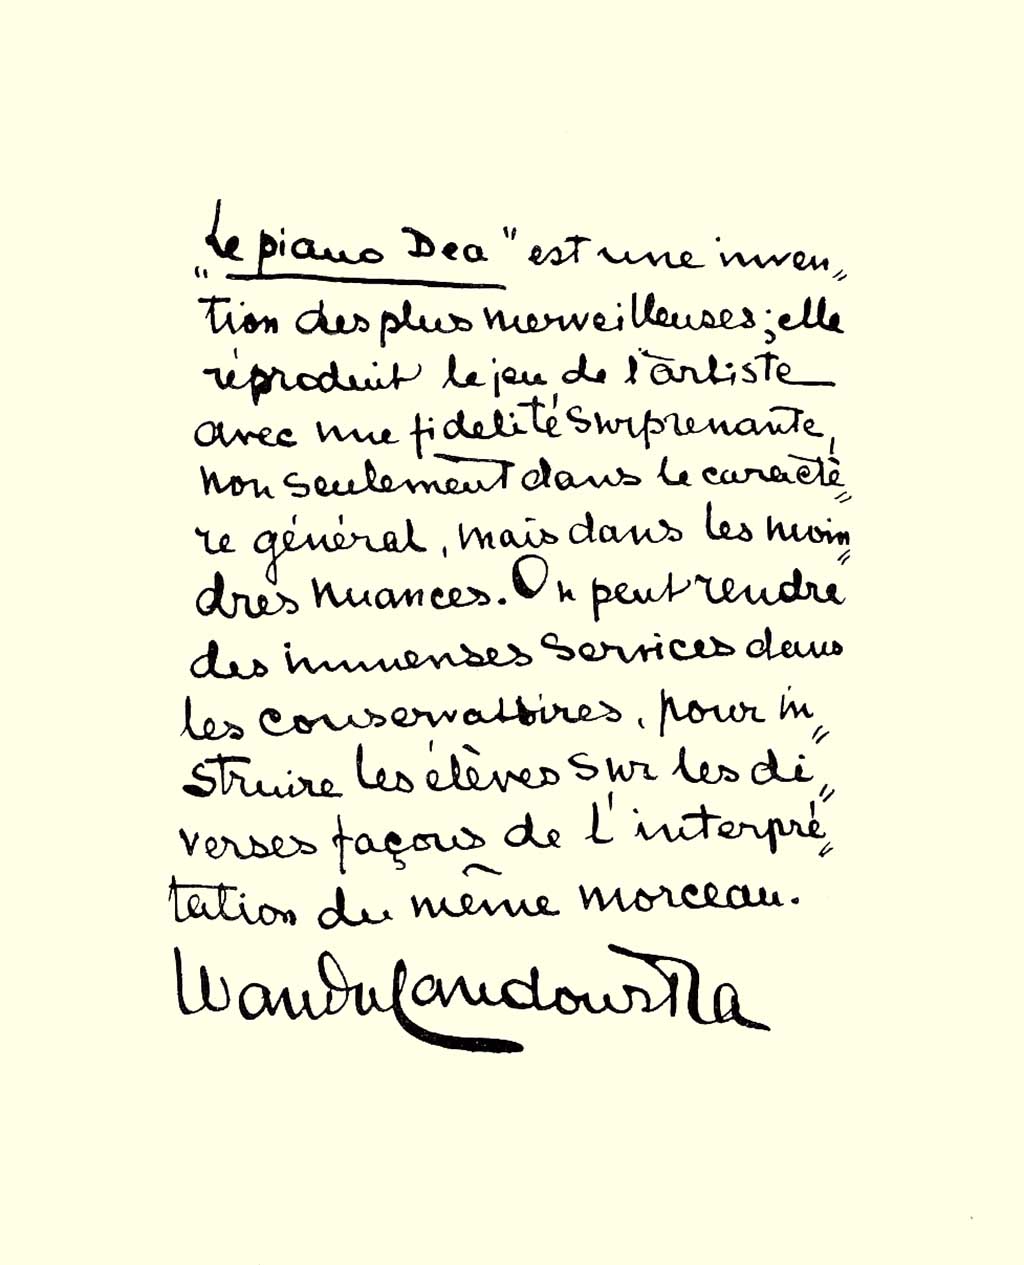 „Le piano Dea" est une inven„
tion des plus merveilleuses; elle
réproduit le jeu de l'artiste
avec une fidelité surprenante,
non seulement dans le caractè„
re général, mais dans les moin„
dres nuances. On peut rendre
des immenses services dans
les conservatoires, pour in„
struire les élèves sur les di„
verses façons de l'interpré„
tation du même morceau.
Wanda Landowska